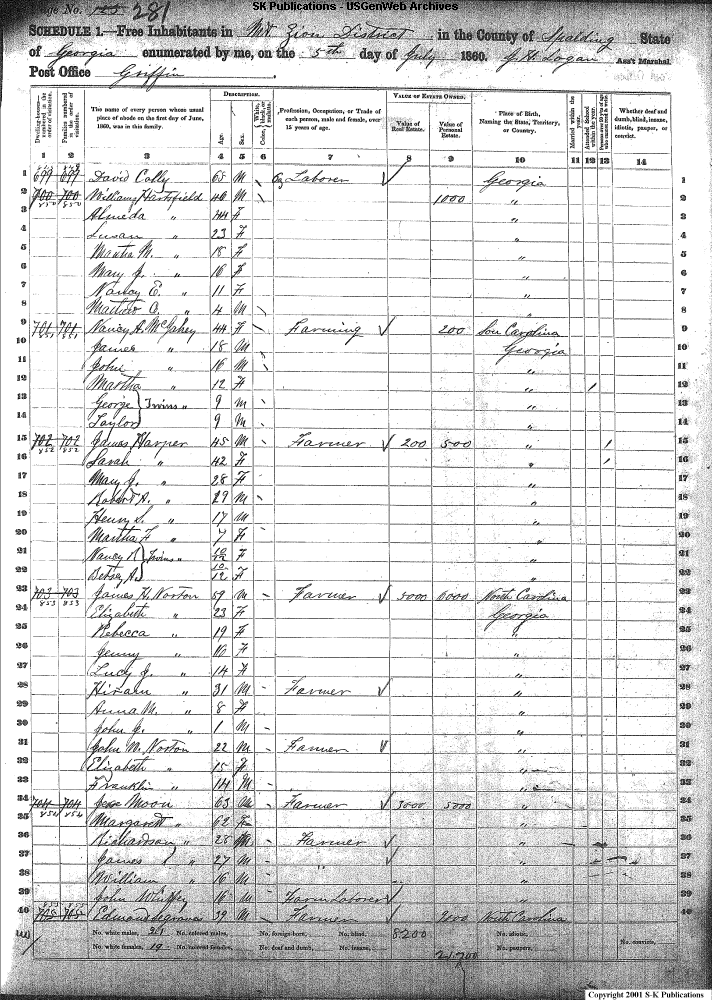 SK Publications - USGenWeb Archives
Page No. 281
SCHEDULE 1.—Free Inhabitants in Mt Zion District in the County of Spalding State
of Georgia enumerated by me, on the 5th day of July 1860. J. H. Logan Ass't Marshal.
Post Office Griffin.
Dwelling-houses—numbered in the order of visitation.
Families numbered in the order of visitation.
The name of every person whose usual place of abode on the first day of June, 1860, was in this family.
DESCRIPTION.
Age.
Sex.
Color, White, black, or mulatto.
Profession, Occupation, or Trade of each person, male and female, over 15 years of age.
VALUE OF ESTATE OWNED.
Value of Real Estate.
Value of Personal Estate.
Place of Birth, Naming the State, Territory, or Country.
Married within the year.
Attended School within the year.
Whether deaf and dumb, blind, insane, idiotic, pauper, or convict.
1 2 3 4 5 6 7 8 9 10 11 12 13 14
1 699 699 David 65 M Laborer Georgia 1
2 700 700 850 850 Williams Hartsfield 40 M 1000 " 2
3 Almeda " 44 F " 3
4 Susan " 23 F " 4
5 Martha M. " 18 F " 5
6 Mary J. " 16 F " 6
7 Nancy E. " 11 F " 7
8 " 4 M " 8
9 701 701 851 851 Nancy A. McGahey 44 F Farming 200 Sou Carolina 9
10 James " 18 M Georgia 10
11 John " 16 M " 11
12 Martha " 12 F " / 12
13 George } Twins " 9 M " 13
14 Taylor } 9 M " 14
15 702 702 852 852 James Harper 45 M Farmer 200 500 " / 15
16 Sarah " 42 F " / 16
17 Mary J. " 28 F " 17
18 Robert A. " 29 M " 18
19 Henry S. " 17 M " 19
20 Martha F " 7 F " 20
21 Nancy } Twins " 10/12 F " 21
22 Betsey A. } 10/12 F " 22
23 703 703 853 853 James H. Norton 59 M Farmer 5000 6000 North Carolina 23
24 Elizabeth " 23 F Georgia 24
25 Rebecca " 19 F " 25
26 Jenny " 16 F " 26
27 Lucy J. " 14 F " 27
28 Hiram " 31 M Farmer " 28
29 Anna M. " 8 F " 29
30 John J. " 1 M " 30
31 John M. Norton 22 M Farmer " 31
32 Elizabeth " 15 F " 32
33 Franklin " 14 M " 33
34 704 704 854 854 Jesse Moon 63 M Farmer 3000 5000 " 34
35 Margarett " 62 F " 35
36 Richardson " 28 M Farmer " 36
37 James " 27 M " " 37
38 William " 16 M " 38
39 John 16 M Farm Laborer " 39
40 705 705 855 855 39 M Farmer 9000 North Carolina 40
No. white males, 21 No. colored males, No. foreign-born, No. blind, 8200 No. idiotic,
No. white females, 19 No. colored females, No. deaf and dumb, No. insane, 21,700 No. paupers, No. convicts,
Copyright 2001 S-K Publications